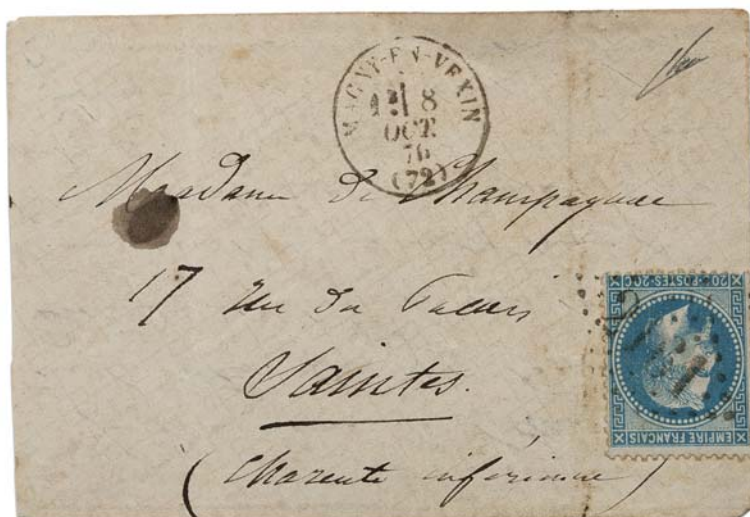 MAGNY-EN-VEXIN
8
OCT.
76
(72)
Madame de Champagnac
17 Rue du Palais
Saintes.
(Charente inférieure)
20 POSTES 20C
EMPIRE FRANÇAIS